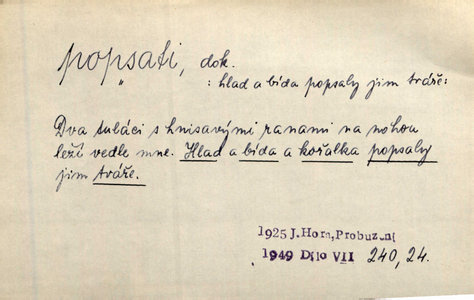 popsati, dok.
: hlad a bída popsaly jim tváře:
Dva tuláci s hnisavými ranami na nohou
leží vedle mne. Hlad a bída a kořalka popsaly
jim tváře.
1925 J. Hora, Probuzení
1949 Dílo VII 240, 24.